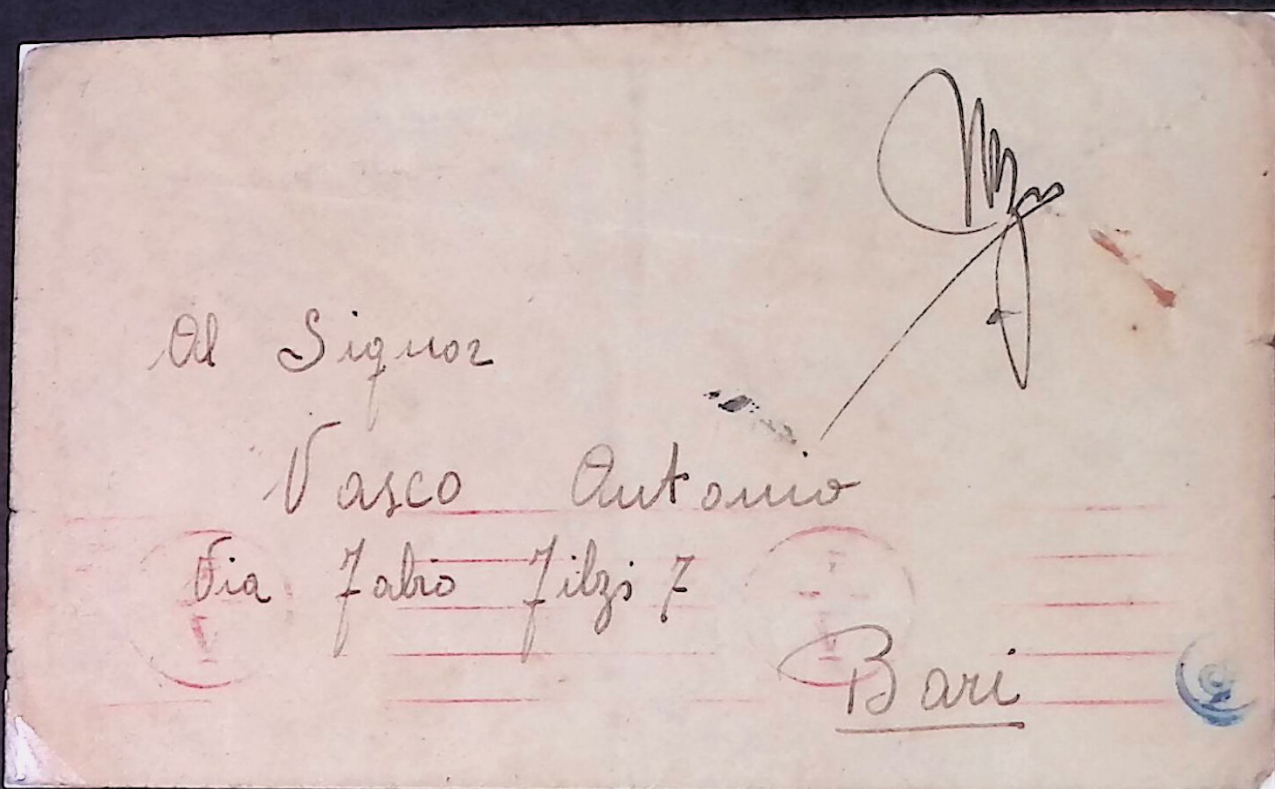 Al Signor
Vasco Antonio
Via Fabio Filzi 7
Bari